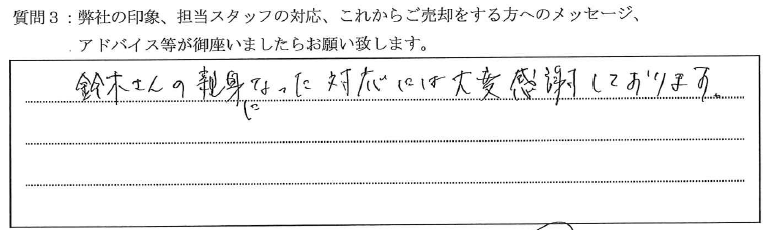 質問３：弊社の印象、担当スタッフの対応、これからご売却をする方へのメッセージ、
アドバイス等が御座いましたらお願い致します。
鈴木さんの親身になった対応には大変感謝しております。